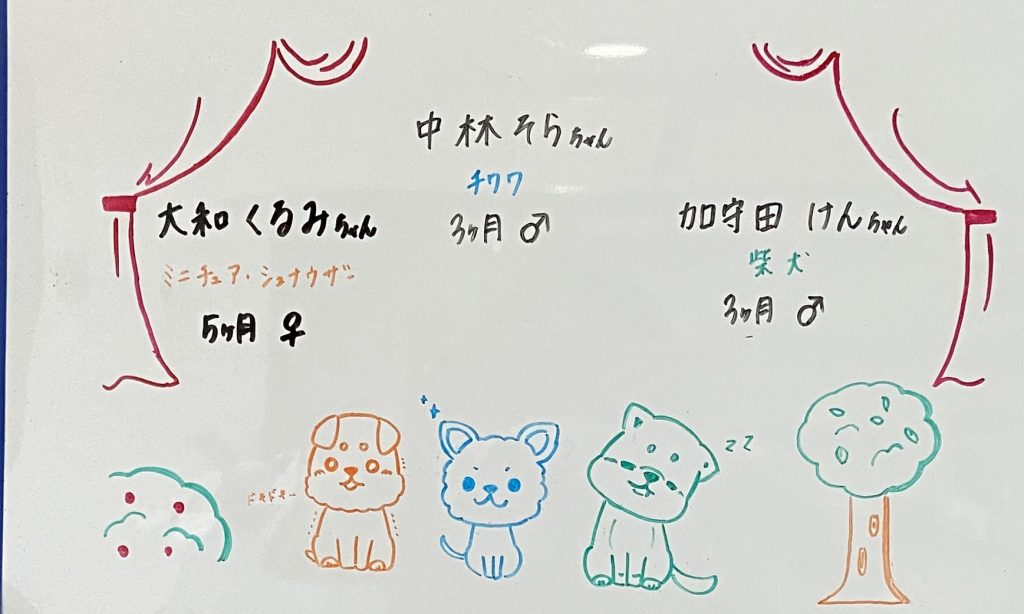 中林そらちゃん
チワワ
3ヶ月 ♂
大和くるみちゃん
ミニチュア・シュナウザー
5ヶ月 ♀
加守田 けんちゃん
柴犬
3ヶ月 ♂
ドキドキー
zz